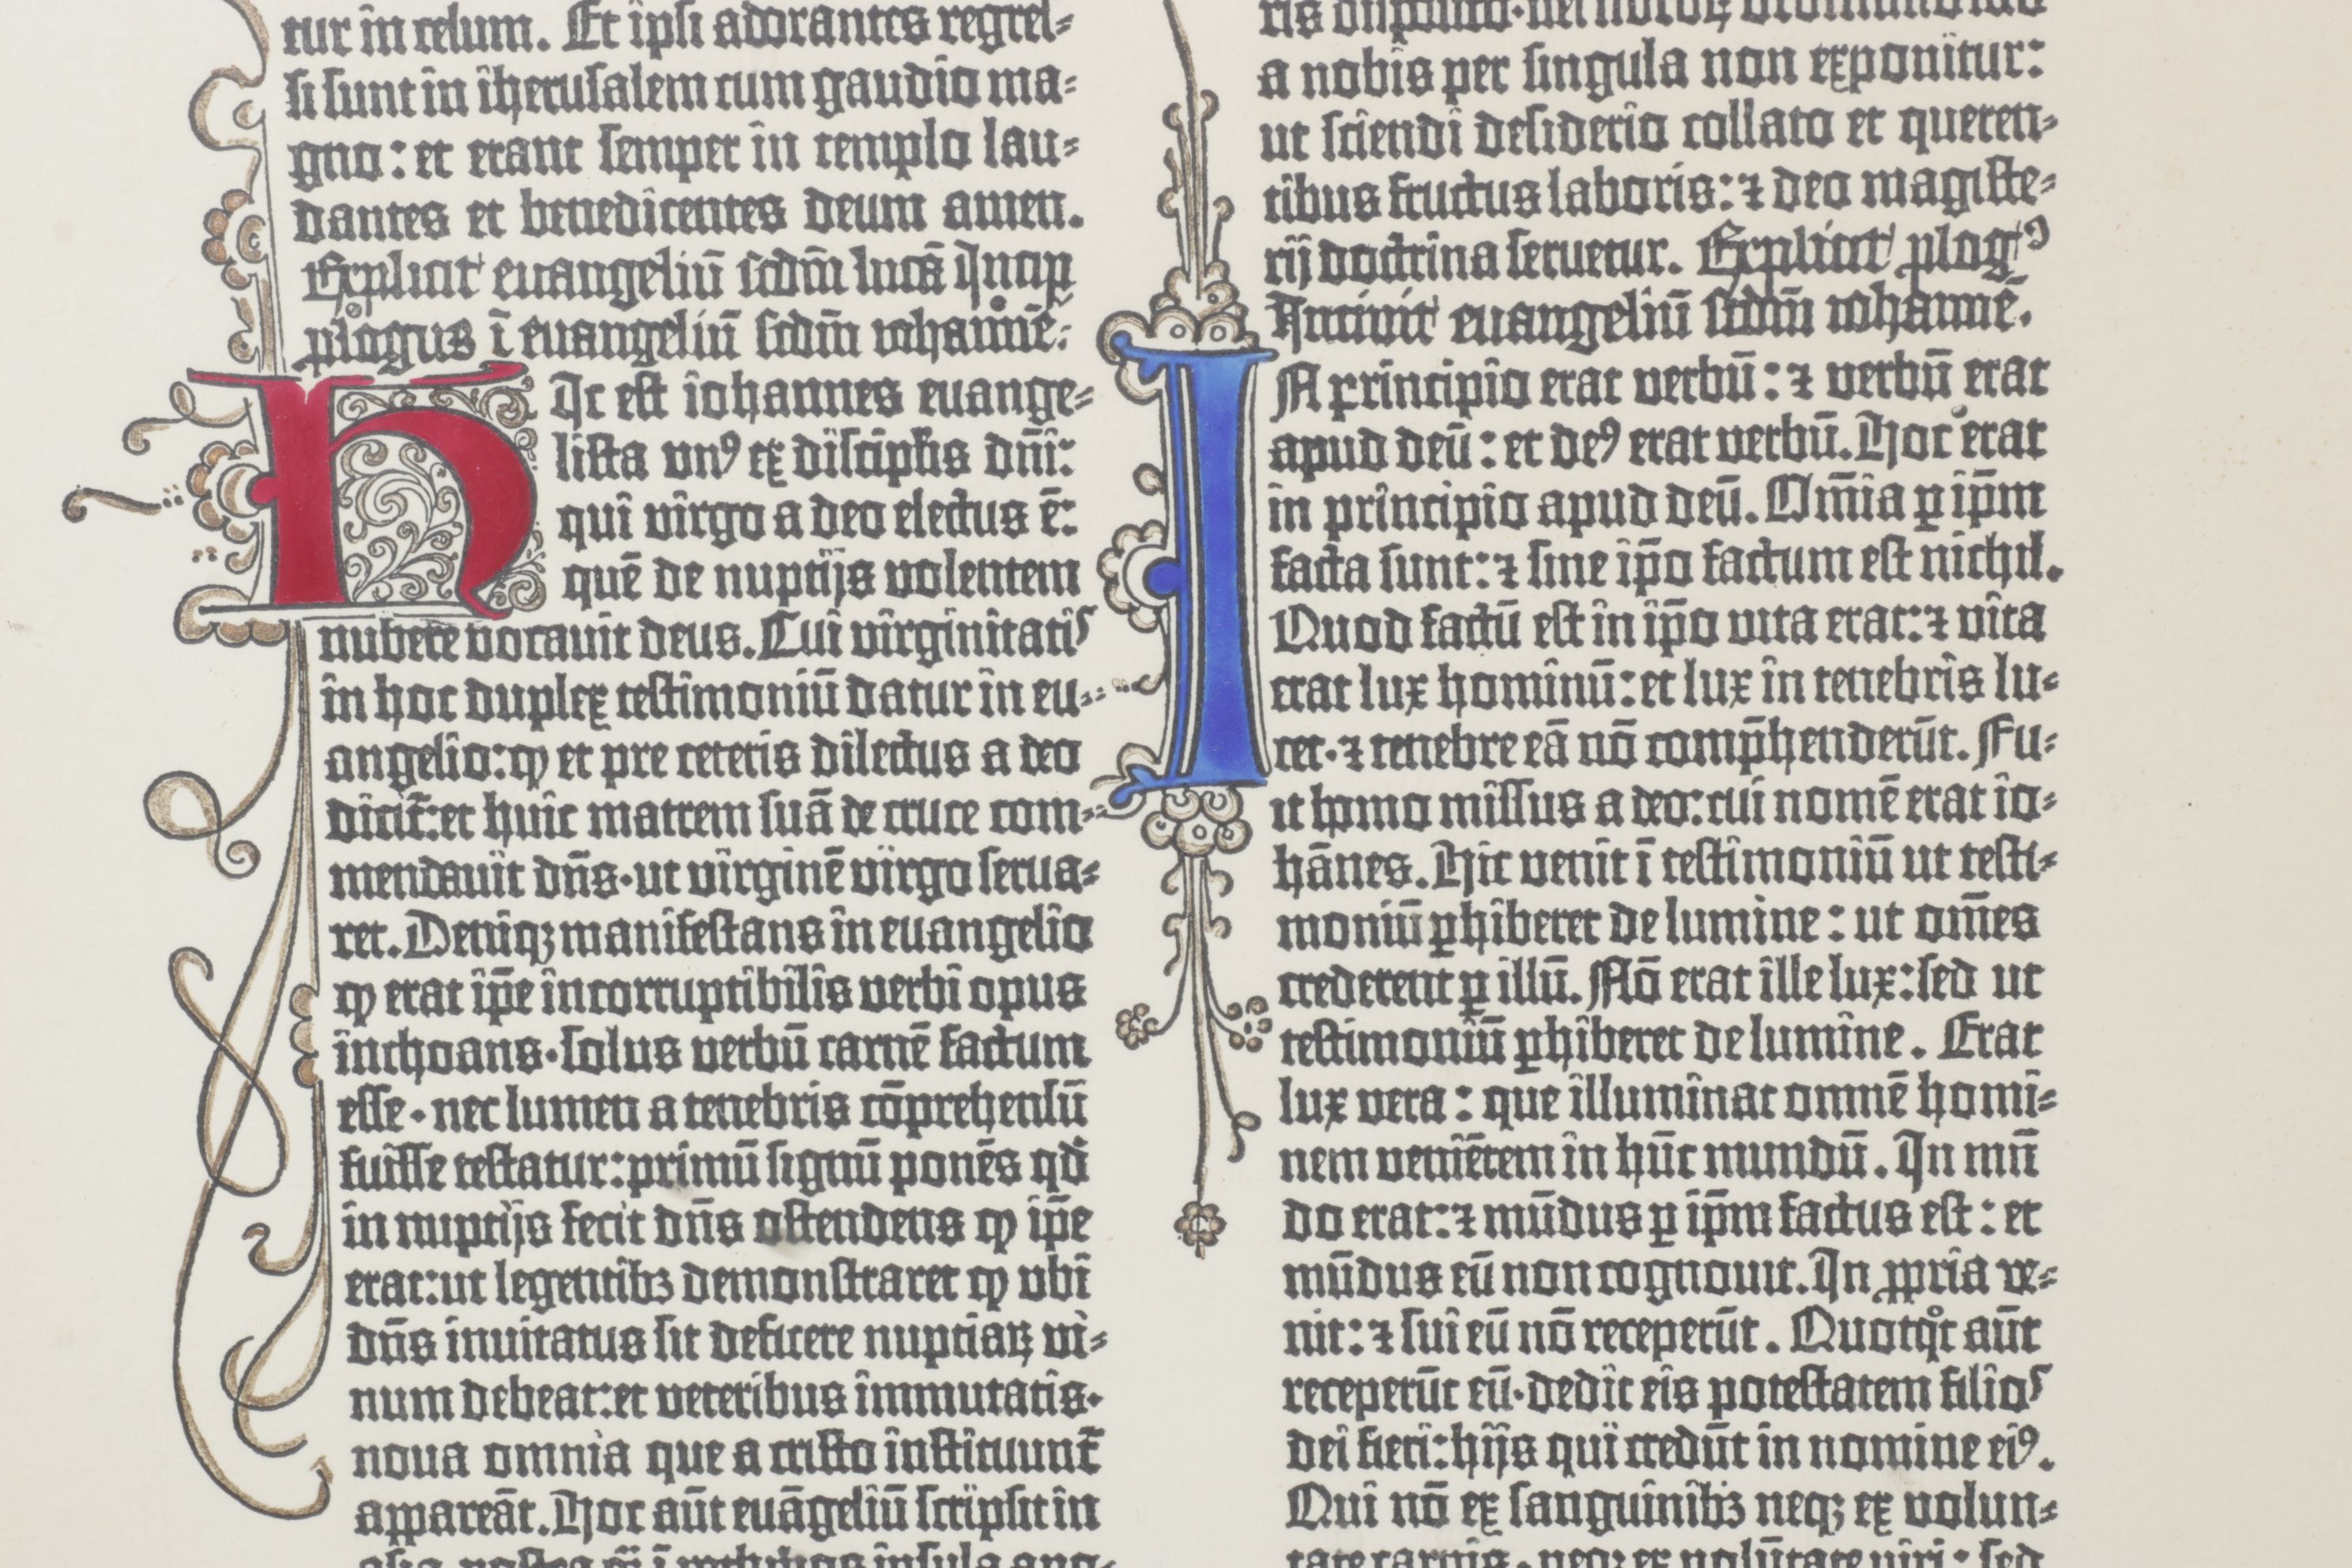 tur in celum. Et ipsi adorantes regres⸗
si sunt in iherusalem cum gaudio ma⸗
gno: et erant semper in templo lau⸗
dantes et benedicentes deum amen.
Explicit euangeliū scdm̄ lucā Incip̄
ꝓlogus ī euangeliū scdm̄ iohannē:
HIc est iohannes euange⸗
lista vnꝰ ex discipl̄is dn̄i:
qui virgo a deo electus ē:
quē de nuptijs volentem
nubere vocauit deus. Cui virginitatis
in hoc duplex testimoniū datur in eu⸗
angelio: ꝙ et pre ceteris dilectus a deo
dicit̄: et huic matrem suā de cruce com⸗
mendauit dn̄s· ut virginē virgo serua⸗
ret. Deniqꝫ manifestans in euangelio
ꝙ erat ip̄e incorruptibilis verbi opus
inchoans· solus verbū carnē factum
esse· nec lumen a tenebris cōprehensū
fuisse testatur: primū signū ponēs qd̄
in nuptijs fecit dn̄s ostendens ꝙ ip̄e
erat: ut legentibꝫ demonstraret ꝙ vbi
dn̄s inuitatus sit deficere nuptiaꝝ vi⸗
num debeat: et veteribus immutatis·
noua omnia que a cristo instituunt̄
appareāt. Hoc aūt euāgeliū scripsit in
a nobis per singula non exponitur:
ut sciendi desiderio collato et queren⸗
tibus fructus laboris: ⁊ deo magiste⸗
rij doctrina seruetur. Explicit ꝓlogꝰ
Incipit euangeliū scdm̄ iohannē.
IN principio erat verbū: ⁊ verbū erat
apud deū: et deꝰ erat verbū. Hoc erat
in principio apud deū. Om̄ia ꝑ ip̄m
facta sunt: ⁊ sine ip̄o factum est nichil.
Quod factū est in ip̄o vita erat: ⁊ vita
erat lux hominū: et lux in tenebris lu⸗
cet· ⁊ tenebre eā nō comp̄henderūt. Fu⸗
it homo missus a deo: cui nomē erat io⸗
hānes. Hic venit ī testimoniū ut testi⸗
moniū ꝑhiberet de lumine: ut om̄es
crederent ꝑ illū. Nō erat ille lux: sed ut
testimoniū ꝑhiberet de lumine. Erat
lux vera: que illuminat omnē homi⸗
nem veniētem in hūc mundū. In mū
do erat: ⁊ mūdus ꝑ ip̄m factus est: et
mūdus eū non cognouit. In ꝓpria ve⸗
nit: ⁊ sui eū nō receperūt. Quotqͦt aūt
receperūt eū· dedit eis potestatem filios
dei fieri: hijs qui credūt in nomine eiꝰ.
Qui nō ex sanguinibꝫ neqꝫ ex volun⸗
tate carnis· neqꝫ ex volūtate viri: sed